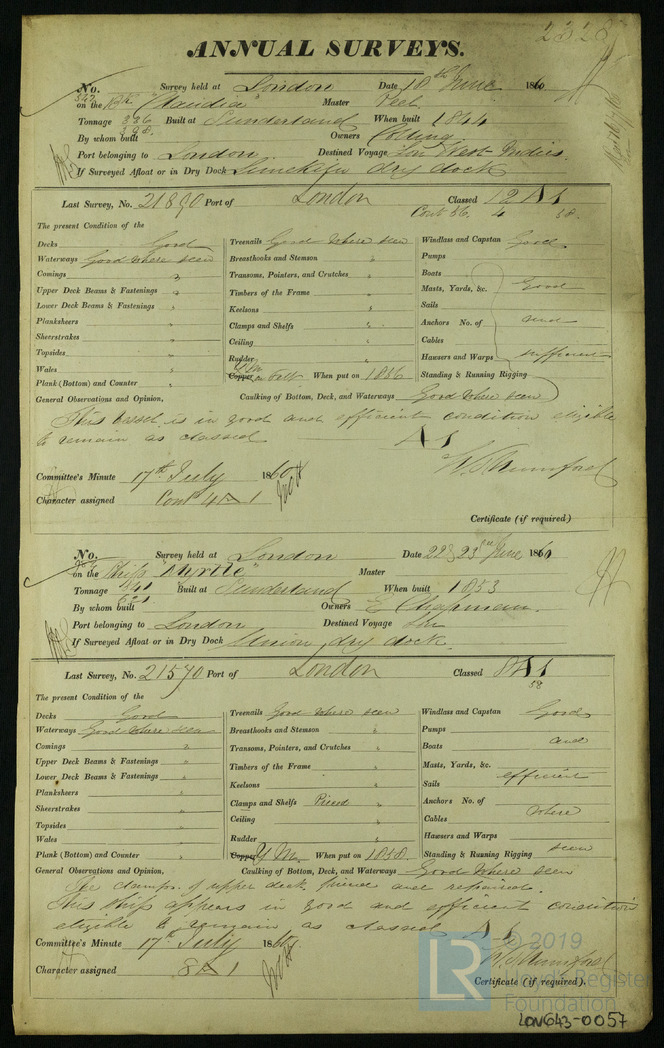 2828
ANNUAL SURVEYS.
No. 542 Survey held at London Date 18th June 1860
on the Bk "Claudia" Master Peel
Tonnage 386 398 Built at Sunderland When built 1844
By whom built Owners
Port belonging to London Destined Voyage Lon West Indies.
If Surveyed Afloat or in Dry Dock Limekiln dry dock
Last Survey, No. 21890 Port of London Classed 12 A 1
Cont 56. 4 58.
The present Condition of the
Decks Good Treenails Good Where seen Windlass and Capstan Good
Waterways Good where seen Breasthooks and Stemson " Pumps
Comings " Transoms, Pointers, and Crutches " Boats
Upper Deck Beams & Fastenings " Timbers of the Frame " Masts, Yards, &c. Good
Lower Deck Beams & Fastenings " Keelsons " Sails
Planksheers " Clamps and Shelfs " Anchors No. of and
Sheerstrakes " Ceiling " Cables
Topsides " Rudder " Hawsers and Warps sufficient
Wales " Copper Y.M. on felt When put on 1856 Standing & Running Rigging
Plank (Bottom) and Counter "
General Observations and Opinion, Caulking of Bottom, Deck, and Waterways Good where seen
This vessel is in good and efficient condition eligible
to remain as classed A 1
W. Mumford
Committee's Minute 17th July 1860
Character assigned Cont 4 A 1
Certificate (if required)
No. Survey held at London Date 22 & 23rd June 1860
on the Ship "Myrtle" Master
Tonnage 621 Built at Sunderland When built 1853
By whom built Owners E Chapman.
Port belonging to London Destined Voyage
If Surveyed Afloat or in Dry Dock Union dry dock.
Last Survey, No. 21570 Port of London Classed 8 A 1
58
The present Condition of the
Decks Good Treenails Good where seen Windlass and Capstan Good
Waterways Good where seen Breasthooks and Stemson " Pumps
Comings " Transoms, Pointers, and Crutches " Boats and
Upper Deck Beams & Fastenings " Timbers of the Frame " Masts, Yards, &c.
Lower Deck Beams & Fastenings " Keelsons " Sails efficient
Planksheers " Clamps and Shelfs Pieced " Anchors No. of
Sheerstrakes " Ceiling " Cables where
Topsides " Rudder " Hawsers and Warps
Wales " Copper Y.M. When put on 1858. Standing & Running Rigging seen
Plank (Bottom) and Counter "
General Observations and Opinion, Caulking of Bottom, Deck, and Waterways Good Where seen
The clamps of upper deck pieced and repaired.
This ship appears in good and efficient condition
eligible to remain as classed A 1
W. Mumford
Committee's Minute 17th July 1860
Character assigned 8 A 1
Certificate (if required).
LR © 2019
Lloyd's Register
Foundation
LON643-0057